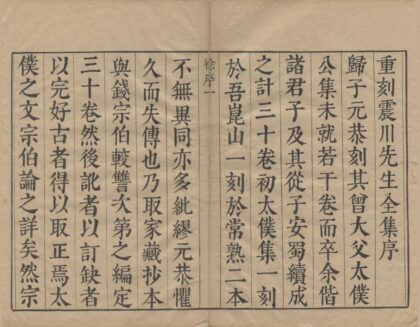 重刻震川先生全集序
歸子元恭刻其曾大父太僕
公集未就若干卷而卒余偕
諸君子及其從子安蜀續成
之計三十卷初太僕集一刻
於吾崑山一刻於常熟二本
徐序一
不無異同亦多紕繆元恭懼
久而失傳也乃取家藏抄本
與錢宗伯較讐次第之編定
三十卷然後訛者以訂缺者
以完好古者得以取正焉太
僕之文宗伯論之詳矣然宗